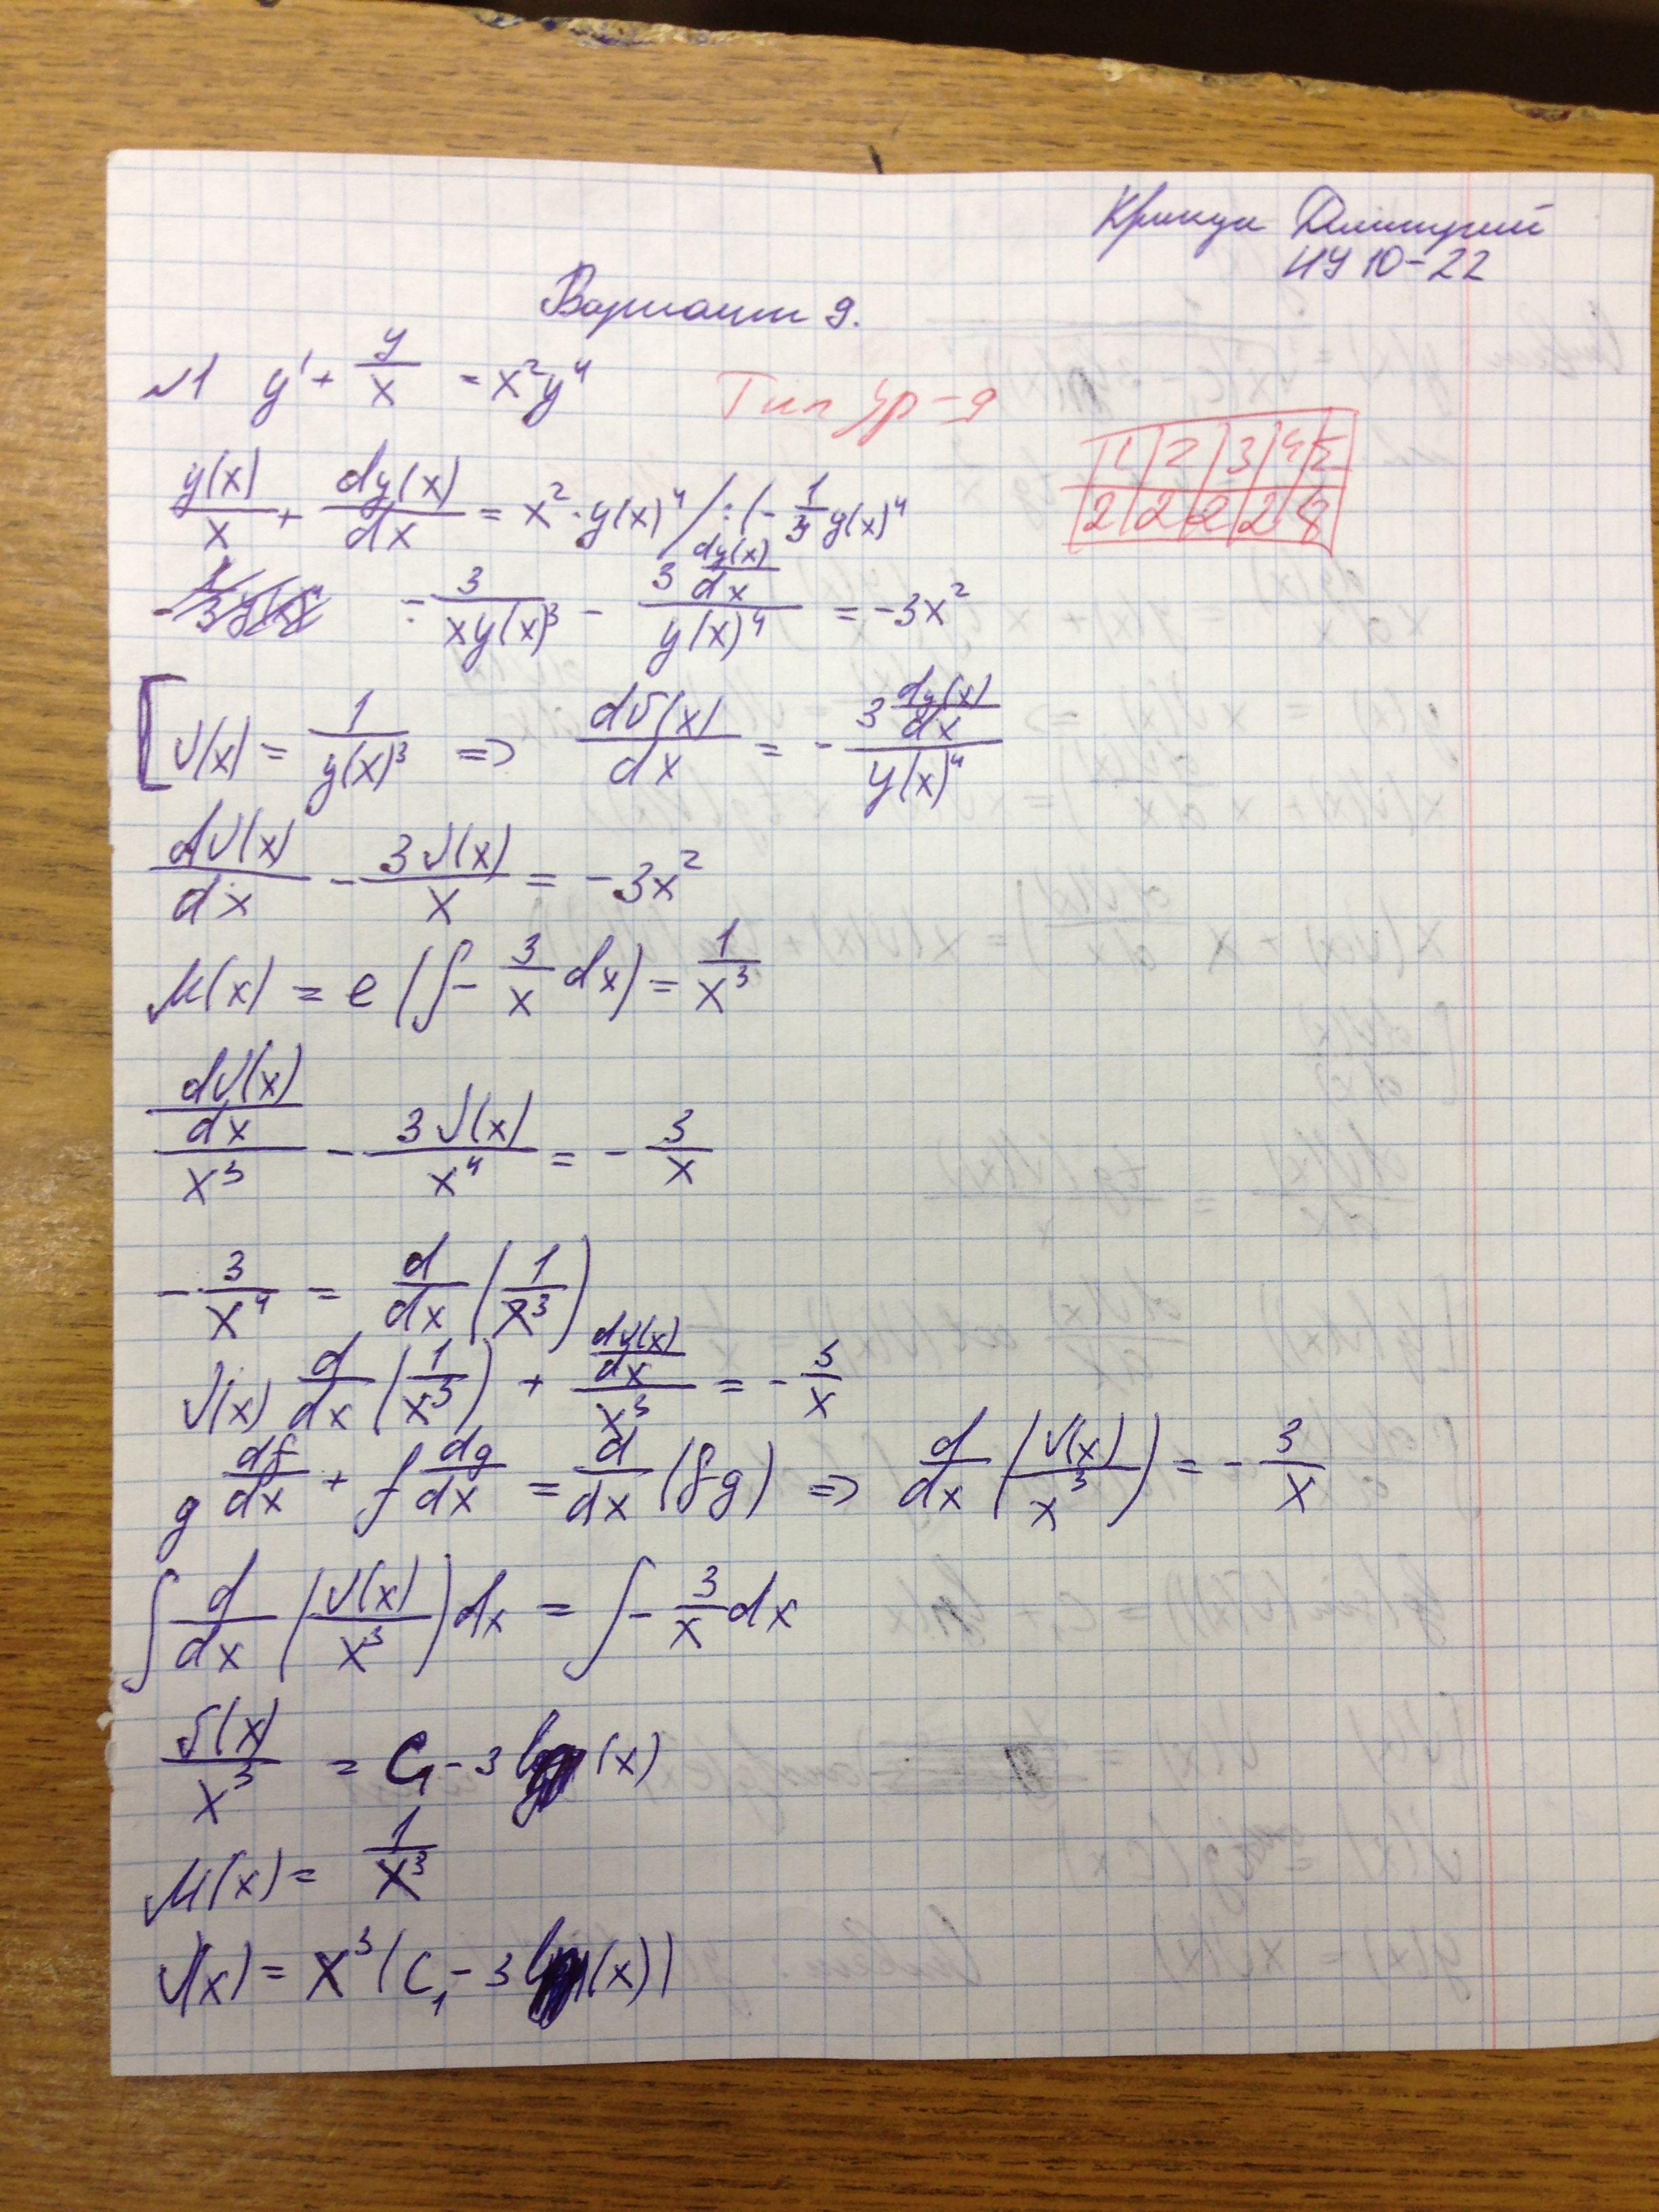 Крикун Дмитрий
ИУ 10-22
Вариант 9.
№1 y' + y/x = x²y⁴
Тип Ур-я
1 2 3 4 5
2 2 2 2 8
y(x)/x + dy(x)/dx = x² · y(x)⁴ / : (-1/3 y(x)⁴
-3/(xy(x)³) - (3 dy(x)/dx)/y(x)⁴ = -3x²
[ v(x) = 1/y(x)³ => dv(x)/dx = -(3 dy(x)/dx)/y(x)⁴
dv(x)/dx - 3v(x)/x = -3x²
μ(x) = e (∫-3/x dx) = 1/x³
(dv(x)/dx)/x³ - 3v(x)/x⁴ = -3/x
-3/x⁴ = d/dx (1/x³)
v(x) d/dx (1/x³) + (dv(x)/dx)/x³ = -3/x
g df/dx + f dg/dx = d/dx (fg) => d/dx (v(x)/x³) = -3/x
∫ d/dx (v(x)/x³) dx = ∫ -3/x dx
v(x)/x³ = C₁ - 3 (x)
μ(x) = 1/x³
v(x) = x³ (C₁ - 3 (x))